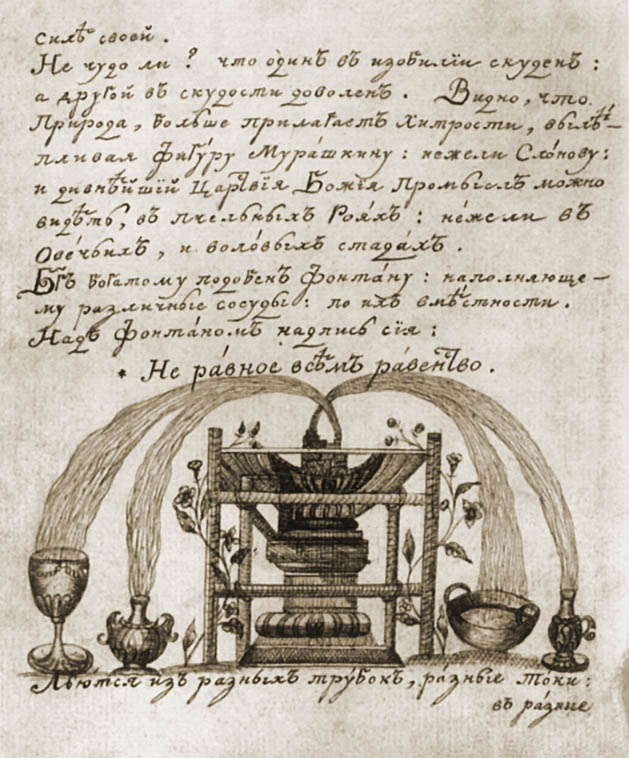 силѣ своей.
Не чудо ли? что один̾ъ въ изобилїи скуденъ:
а другой въ скудости доволенъ. Видно, что
Природа, больше прилагаетъ Хитрости, вылѣ-
пливая Фигȣ́ру Мура́шкину: нежели Сло́нову:
и дивнѣйшїй Царствїя Божїя Промыслъ можно
видѣть, въ пчельныхъ Роя́хъ: не́жели въ
Ове́чьихъ, и воло́выхъ стада́хъ.
Бг҃ъ богатому подобенъ Фонта́ну: наполняюще-
му различные сосуды: по ихъ вмѣ́стности.
Надъ Фонта́номъ надпись сїя:
* Не ра́вное всѣ́мъ ра́венство.
Лью́тся изъ разныхъ трȣ́бокъ, ра́зные то́ки:
въ ра́зные